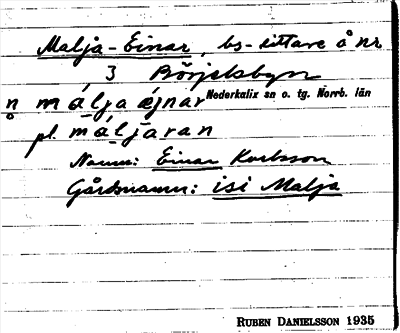 Malja-Einar, bs-sittare å nr
3 Börjelsbyn
n målja ájnar Nederkalix sn o. tg. Norrb. län
pl. måljaran
Namn: Einar Karlsson
Gårdsnamn: isi Malja
RUBEN DANIELSSON 1935